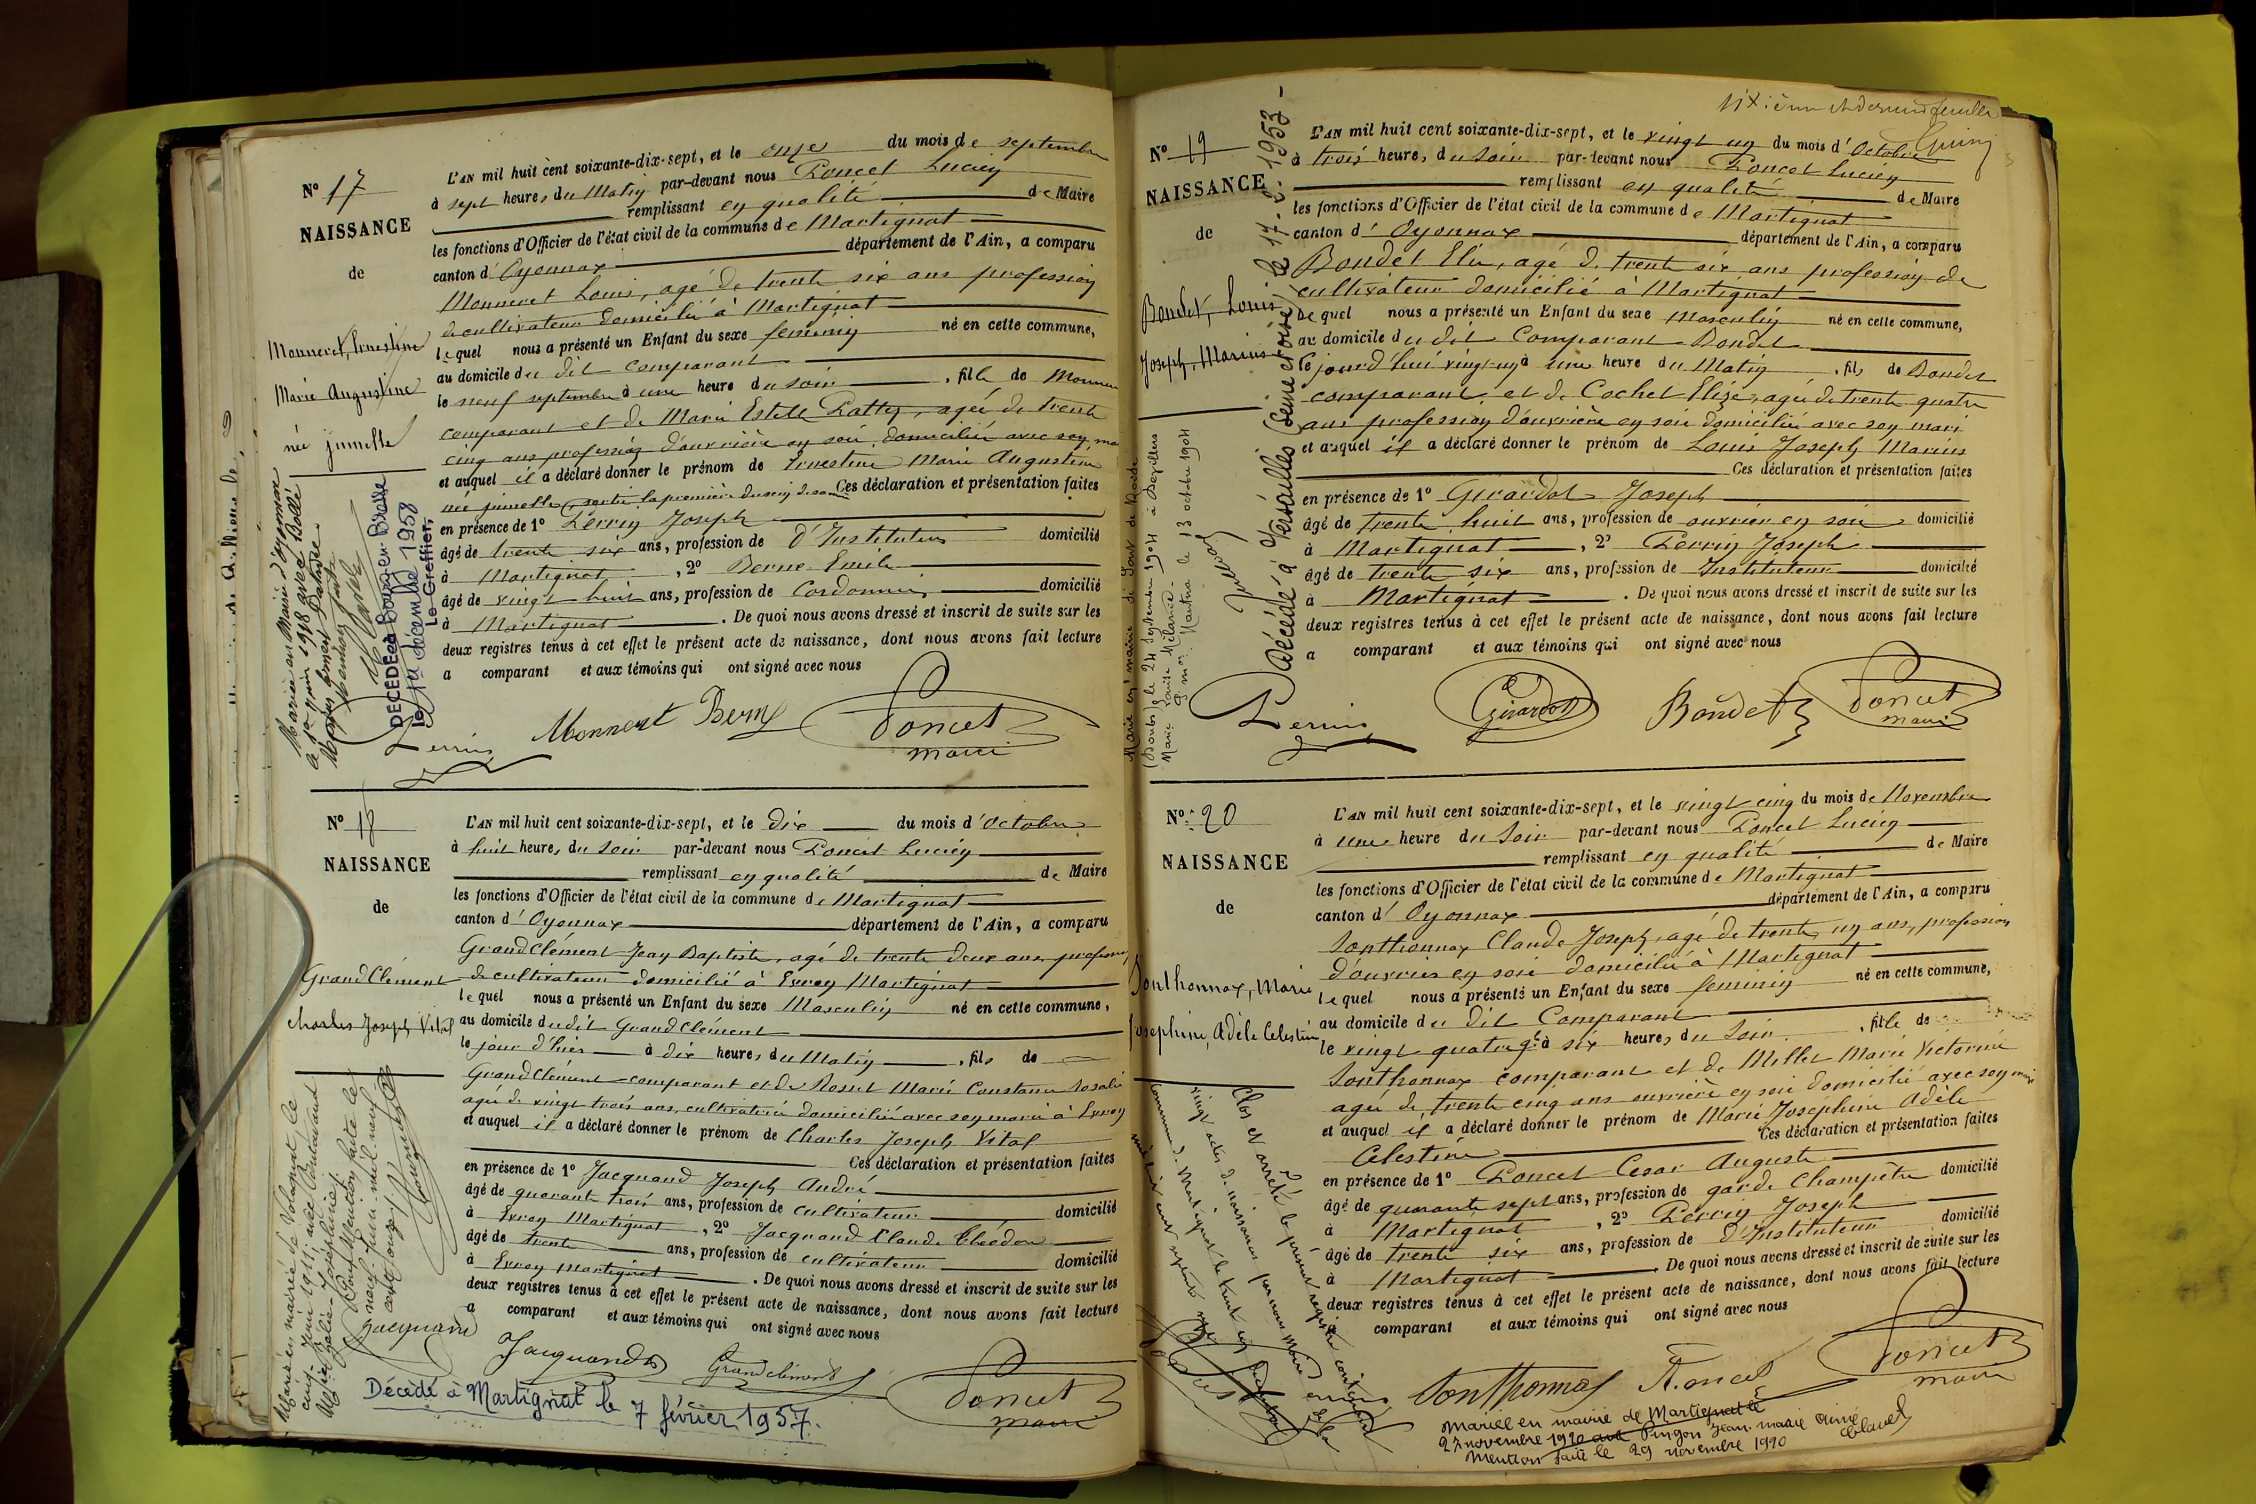 N° 17
NAISSANCE
de
Monneret, Ernestine
Marie Augustine
née jumelle
L'AN mil huit cent soixante-dix-sept, et le onze du mois de septembre
à sept heures du Matin par-devant nous Poncet Lucien
remplissant en qualité de Maire
les fonctions d'Officier de l'état civil de la commune de Martignat
canton d'Oyonnax département de l'Ain, a comparu
Monneret Louis, agé de trente six ans profession
de cultivateur domicilié à Martignat
lequel nous a présenté un Enfant du sexe feminin né en cette commune,
au domicile du dit comparant
le neuf septembre à une heure du soir, fille de Monneret
comparant et de Marie Estelle Patty, agée de trente
cinq ans profession d'ouvrière en soie, domiciliée avec son mari
et auquel il a déclaré donner le prénom de Ernestine Marie Augustine
née jumelle, sortie la première du sein de sa Ces déclaration et présentation faites
en présence de 1° Perrin Joseph
âgé de trente six ans, profession de d'Instituteur domicilié
à Martignat, 2° Berne Emile
âgé de vingt huit ans, profession de Cordonnier domicilié
à Martignat. De quoi nous avons dressé et inscrit de suite sur les
deux registres tenus à cet effet le présent acte de naissance, dont nous avons fait lecture
a comparant et aux témoins qui ont signé avec nous
DÉCÉDÉE à Bourg-en-Bresse
le décembre 1958
Le Greffier,
Perrin Monneret Berne Poncet
maire
N° 18
NAISSANCE
de
GrandClément
Charles Joseph Vital
L'AN mil huit cent soixante-dix-sept, et le dix du mois d'Octobre
à huit heures du soir par-devant nous Poncet Lucien
remplissant en qualité de Maire
les fonctions d'Officier de l'état civil de la commune de Martignat
canton d'Oyonnax département de l'Ain, a comparu
GrandClément Jean Baptiste, agé de trente deux ans, profession
de cultivateur domicilié à Evron Martignat
lequel nous a présenté un Enfant du sexe Masculin né en cette commune,
au domicile dudit GrandClément
le jour d'hier à dix heures du Matin, fils de
GrandClément comparant et de Rosset Marie Constance Rosalie
agée de vingt trois ans, cultivatrice domiciliée avec son mari à Evron
et auquel il a déclaré donner le prénom de Charles Joseph Vital
Ces déclaration et présentation faites
en présence de 1° Jacquand Joseph André
âgé de quarante trois ans, profession de cultivateur domicilié
à Evron Martignat, 2° Jacquand Claude Théodore
âgé de trente ans, profession de cultivateur domicilié
à Evron Martignat. De quoi nous avons dressé et inscrit de suite sur les
deux registres tenus à cet effet le présent acte de naissance, dont nous avons fait lecture
a comparant et aux témoins qui ont signé avec nous
Jacquand Jacquand Grandclément Poncet
maire
Décédé à Martignat le 7 février 1957.
N° 19
NAISSANCE
de
Boudet, Louis
Joseph, Marius
L'AN mil huit cent soixante-dix-sept, et le vingt un du mois d'Octobre
à trois heures du soir par-devant nous Poncet Lucien
remplissant en qualité de Maire
les fonctions d'Officier de l'état civil de la commune de Martignat
canton d'Oyonnax département de l'Ain, a comparu
Boudet Elie, agé de trente six ans profession de
cultivateur domicilié à Martignat
lequel nous a présenté un Enfant du sexe Masculin né en cette commune,
au domicile du dit Comparant Boudet
le jourd'hui vingt un à une heure du Matin, fils de Boudet
comparant, et de Cochet Elise, agée de trente quatre
ans profession d'ouvrière en soie domiciliée avec son mari
et auquel il a déclaré donner le prénom de Louis Joseph Marius
Ces déclaration et présentation faites
en présence de 1° Girardot Joseph
âgé de trente huit ans, profession de ouvrier en soie domicilié
à Martignat, 2° Perrin Joseph
âgé de trente six ans, profession de Instituteur domicilié
à Martignat. De quoi nous avons dressé et inscrit de suite sur les
deux registres tenus à cet effet le présent acte de naissance, dont nous avons fait lecture
a comparant et aux témoins qui ont signé avec nous
Décédé à Versailles (Seine et Oise) le 17-2-1953-
Perrin Girardot Boudet Poncet
maire
N° 20
NAISSANCE
de
Sonthonnax, Marie
Joséphine, Adèle Celestine
L'AN mil huit cent soixante-dix-sept, et le vingt cinq du mois de Novembre
à une heure du Soir par-devant nous Poncet Lucien
remplissant en qualité de Maire
les fonctions d'Officier de l'état civil de la commune de Martignat
canton d'Oyonnax département de l'Ain, a comparu
Sonthonnax Claude Joseph, agé de trente un ans, profession
d'ouvrier en soie domicilié à Martignat
lequel nous a présenté un Enfant du sexe feminin né en cette commune,
au domicile du dit Comparant
le vingt quatre à six heures du Soir, fille de
Sonthonnax comparant et de Millet Marie Victorine
agée de trente cinq ans ouvrière en soie domiciliée avec son mari
et auquel il a déclaré donner le prénom de Marie Joséphine Adèle
Celestine Ces déclaration et présentation faites
en présence de 1° Poncet Cesar Auguste
âgé de quarante sept ans, profession de garde Champêtre domicilié
à Martignat, 2° Perrin Joseph
âgé de trente six ans, profession de d'Instituteur domicilié
à Martignat. De quoi nous avons dressé et inscrit de suite sur les
deux registres tenus à cet effet le présent acte de naissance, dont nous avons fait lecture
a comparant et aux témoins qui ont signé avec nous
Sonthonnax Poncet
maire
Mariée en mairie de Martignat le
27 novembre 1920 Pingon Jean-marie Aimé
Mention faite le 29 novembre 1920